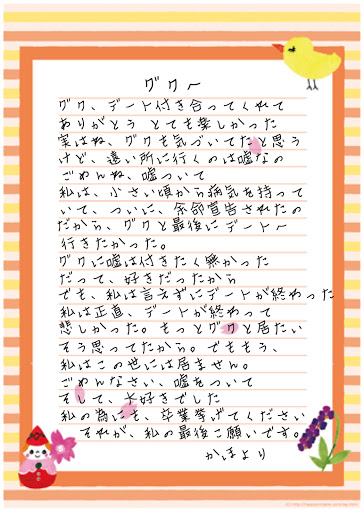 グクへ
グク、デート付き合ってくれて
ありがとう とても楽しかった
実はね、グクも気づいてたと思う
けど、遠い所に行くのは嘘なの
ごめんね、嘘ついて
私は、小さい頃から病気を持って
いて、ついに、余命宣告されたの
だから、グクと最後にデートへ
行きたかった。
グクに嘘は付きたく無かった
だって、好きだったから
でも、私は言えずにデートが終わった
私は正直、デートが終わって
悲しかった。もっとグクと居たい
そう思ってたから。でももう、
私はこの世には居ません。
ごめんなさい、嘘をついて
そして、大好きでした
私の為にも、卒業挙げてください
それが、私の最後こ願いです。
かほより